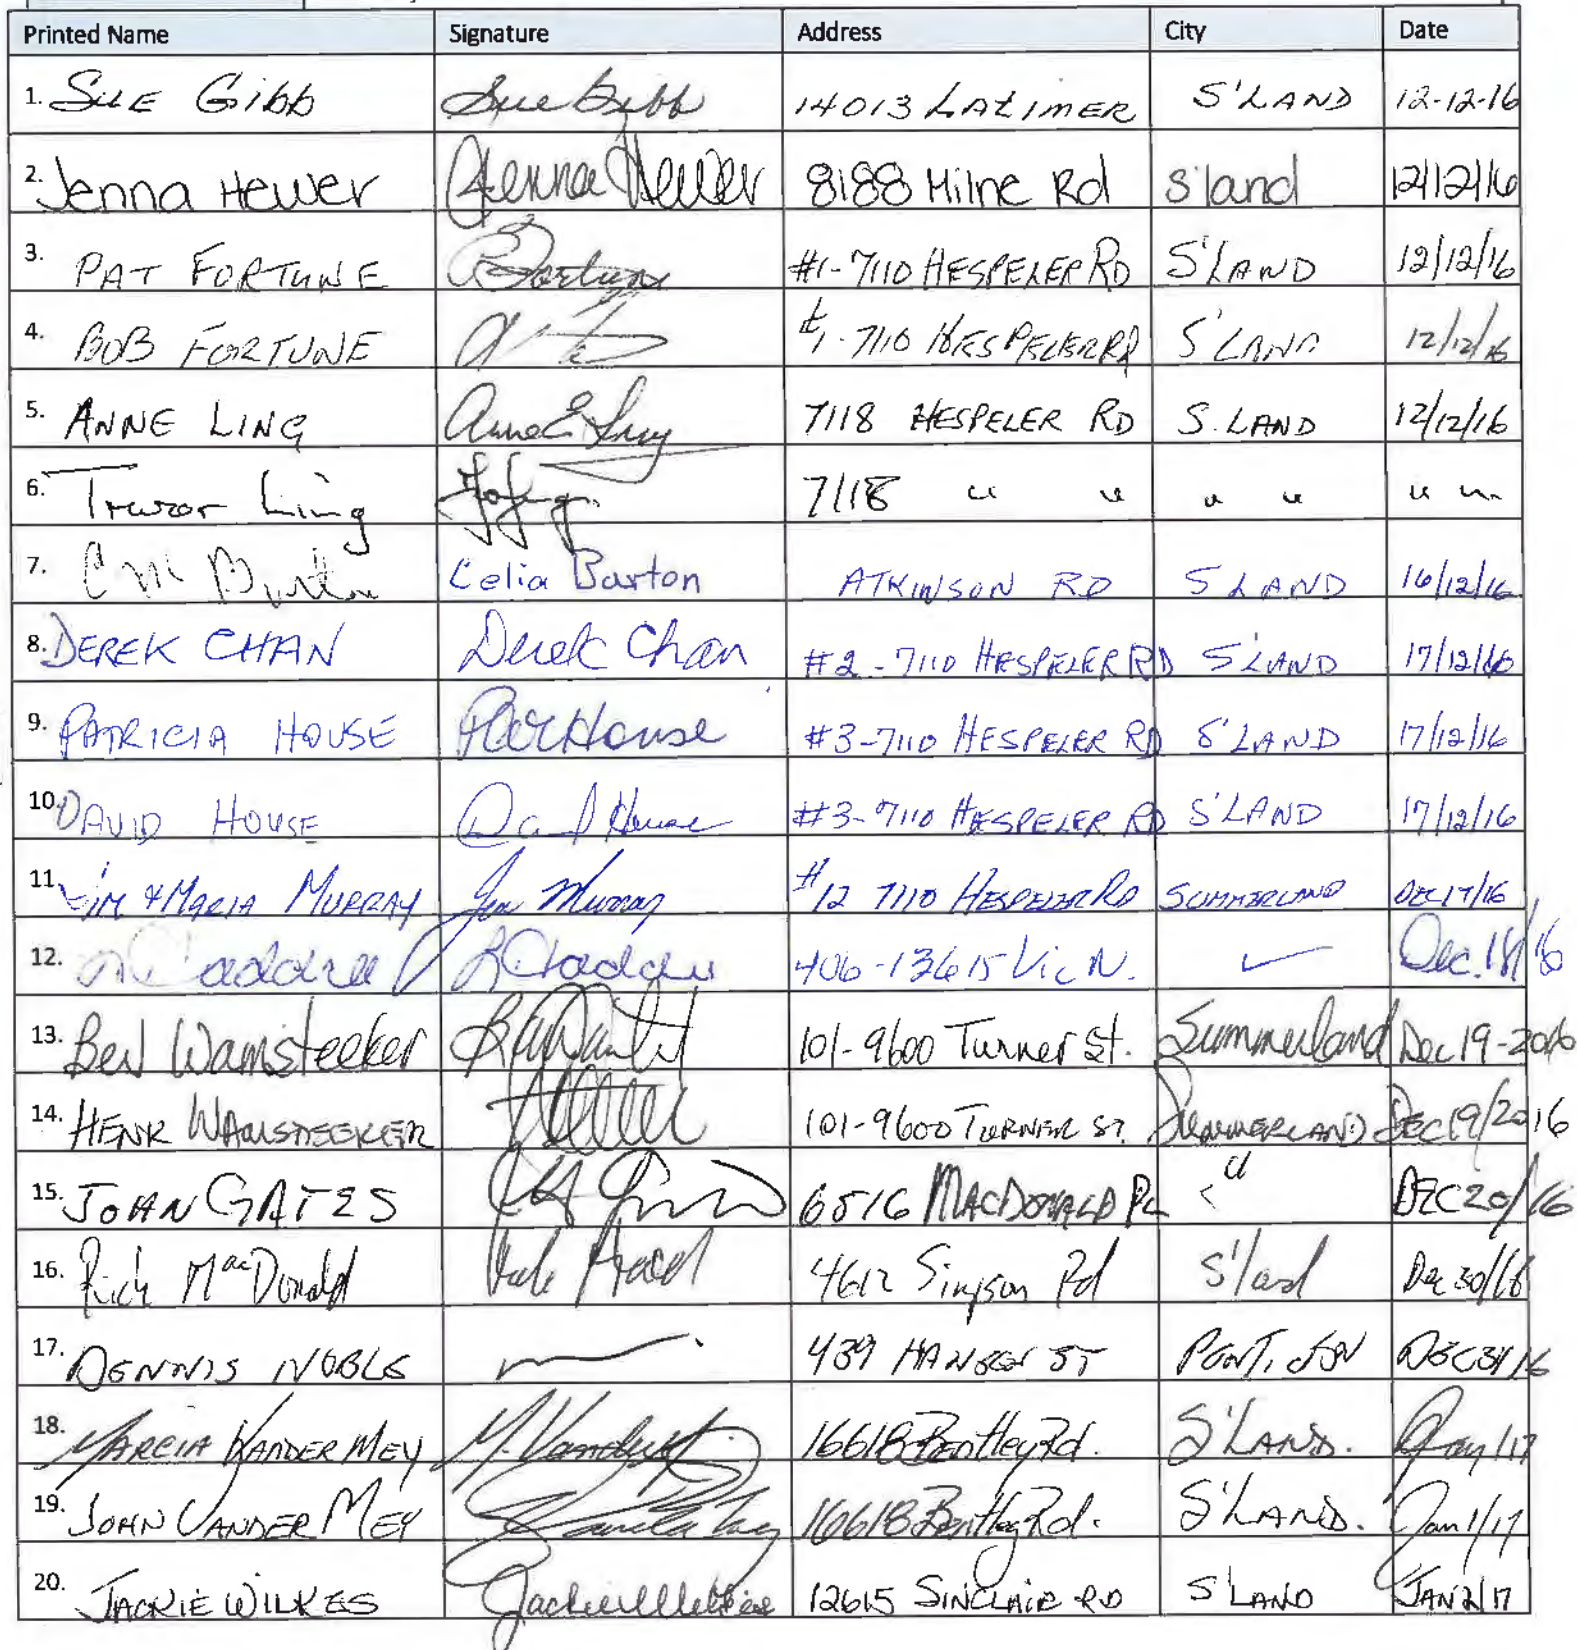 Printed Name Signature Address City Date
1. SUE Gibb Sue Gibb 14013 LATIMER S'LAND 12-12-16
2. Jenna Hewer Jenna Hewer 8188 Milne Rd S'land 12/12/16
3. PAT FORTUNE Fortune #1-7110 HESPELER RD S'LAND 12/12/16
4. BOB FORTUNE #1-7110 HESPELER RD S'LAND 12/12/16
5. ANNE LING Anne E Ling 7118 HESPELER RD S.LAND 12/12/16
6. Trevor Ling 7118 " " " " " "
7. C M Celia Barton ATKINSON RD S'LAND 16/12/16
8. DEREK CHAN Derek Chan #2-7110 HESPELER RD S'LAND 17/12/16
9. PATRICIA HOUSE House #3-7110 HESPELER RD S'LAND 17/12/16
10. DAVID HOUSE David House #3-7110 HESPELER RD S'LAND 17/12/16
11. JIM & MARIA MURRAY Jim Murray #12 7110 HESPELER RD SUMMERLAND DEC 17/16
12. 406-13615 Vic N. ✓ Dec. 18/16
13. Bev Wamsteeker 101-9600 Turner St. Summerland Dec 19-2016
14. HENK WAMSTEEKER 101-9600 TURNER ST. SUMMERLAND DEC 19/2016
15. JOHN GATES 6516 MACDONALD PL " DEC 20/16
16. Rick MacDonald 4612 Simpson Rd S'land Dec 30/16
17. DENNIS NOBLE 439 HANSEN ST PENT,
18. MARCIA VANDER MEY M. Vander Mey 16618 Bentley Rd. S'LAND. Jan 1/17
19. JOHN VANDER MEY 16618 Bentley Rd. S'LAND. Jan 1/17
20. JACKIE WILKES Jackie Wilkes 12615 SINCLAIR RD S'LAND JAN 2/17